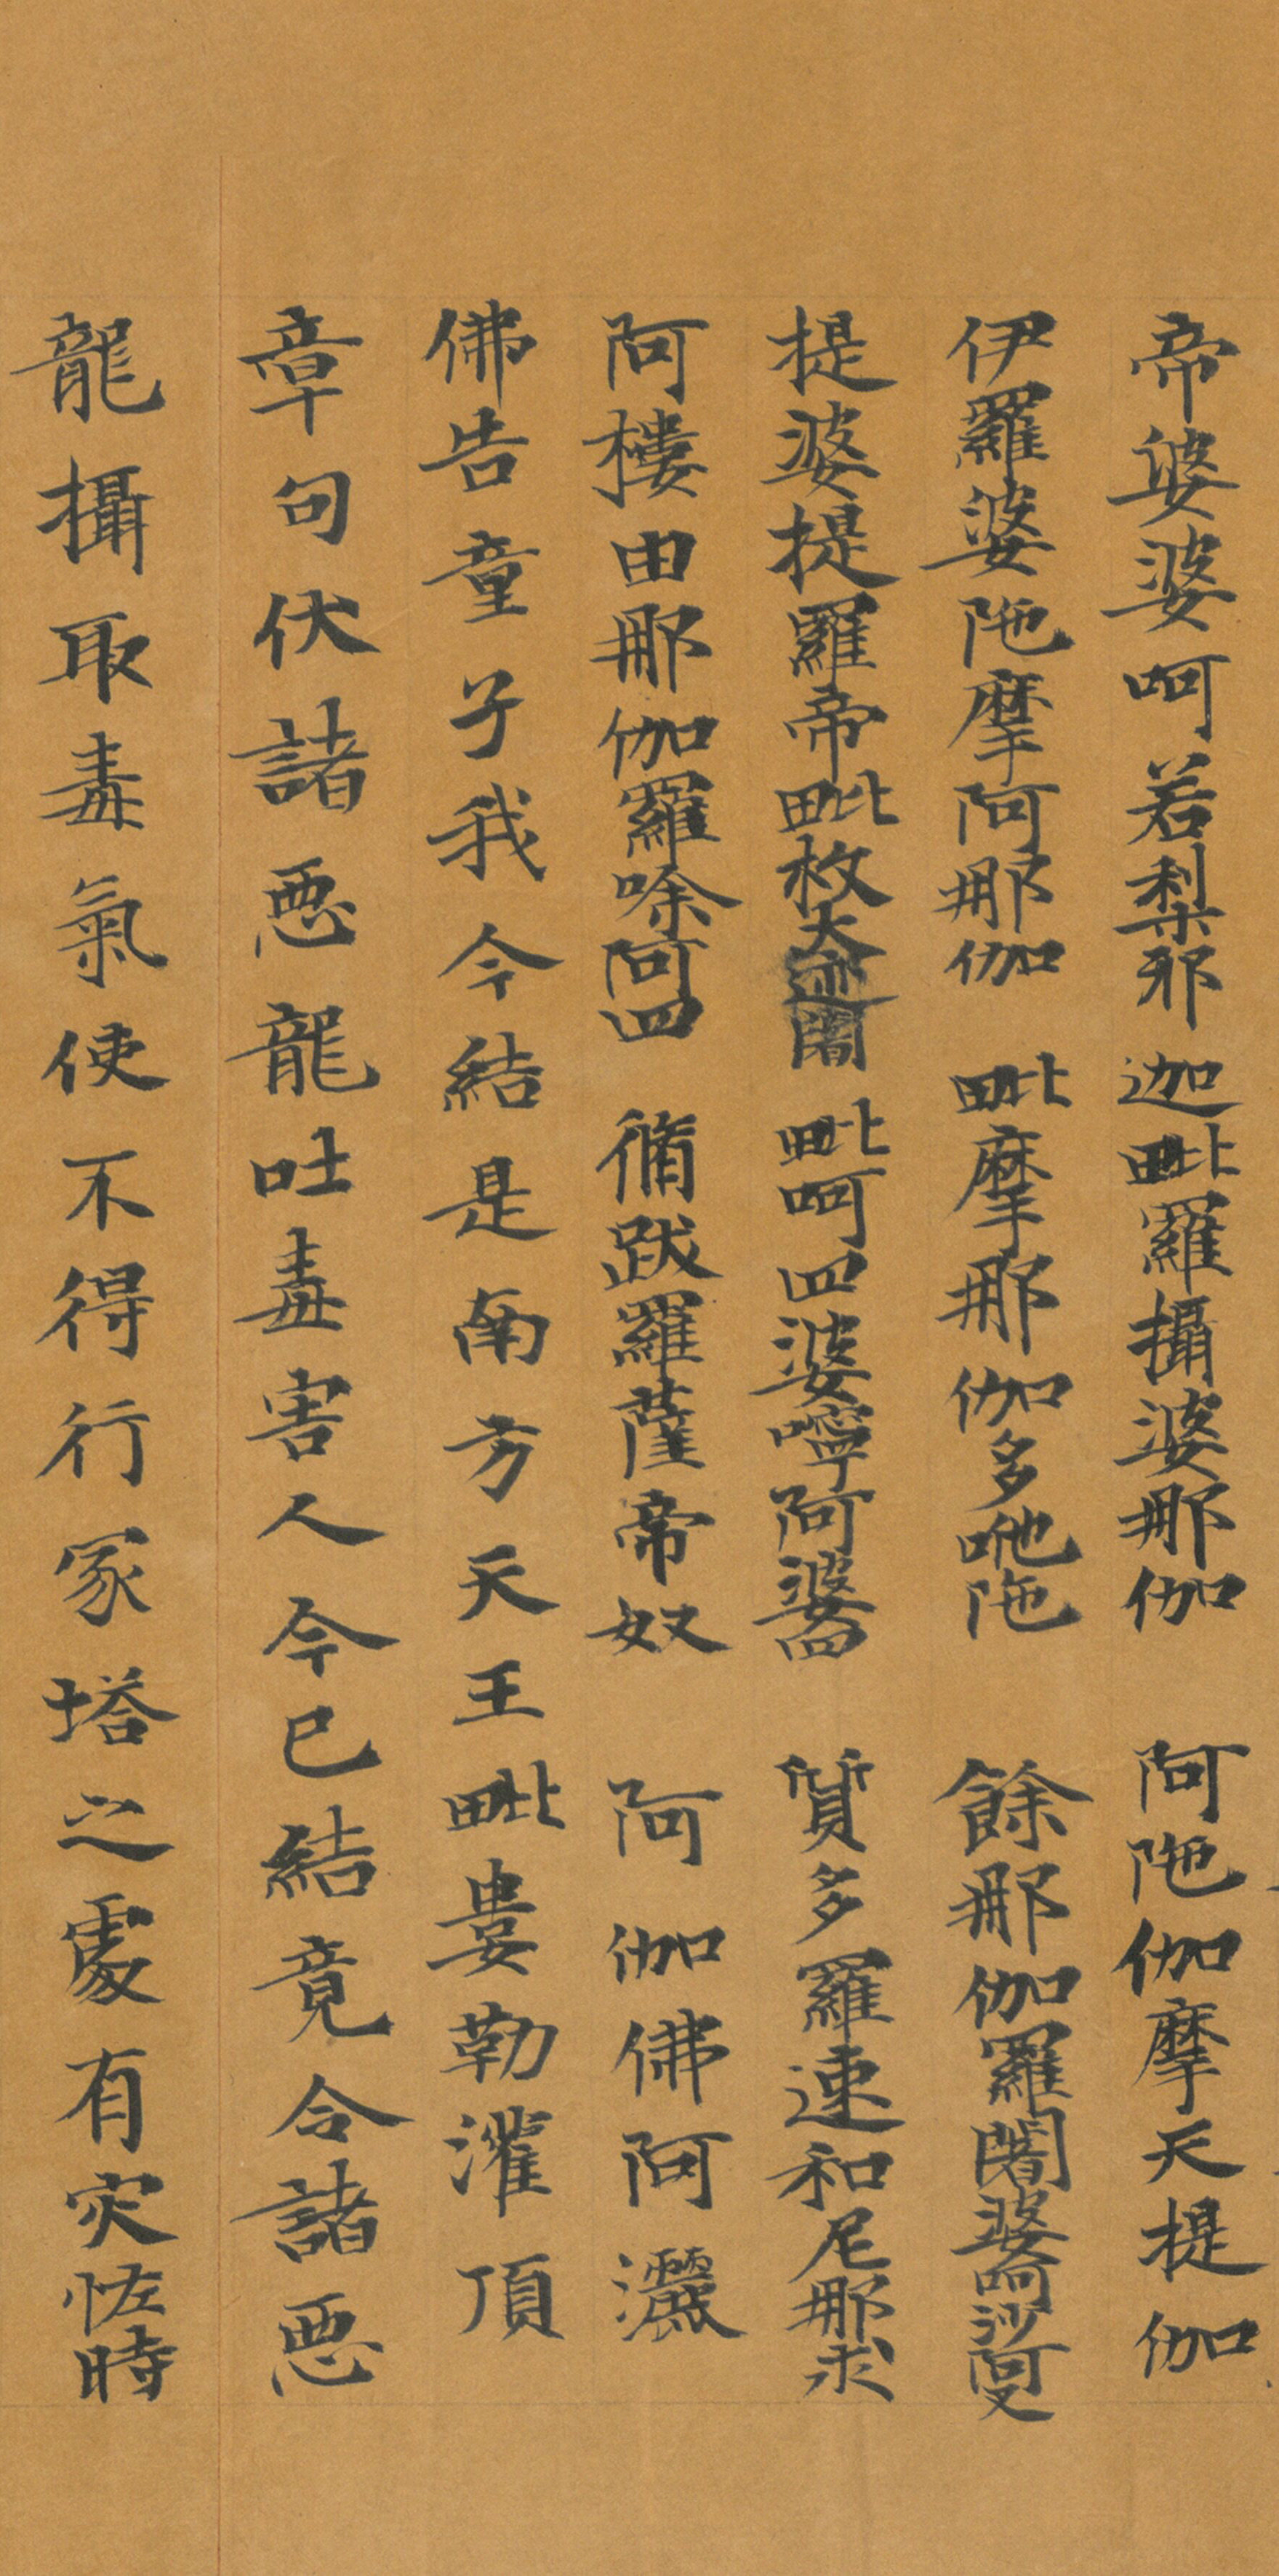 帝婆婆呵若梨邪迦毗羅攝婆那伽 阿陁伽摩天提伽
伊羅婆陁摩阿那伽 毗摩那伽多咃陁 餘那伽羅闍婆呵沙呵叉
提婆提羅帝毗枚大迹闍 毗呵四婆嚀阿婆四 質多羅速和尼那求
阿樓由那伽羅唋阿四 脩跋羅薩帝奴 阿伽佛阿灑
佛告童子我今結是南方天王毗婁勒灌頂
章句伏諸惡龍吐毒害人今已結竟令諸惡
龍攝取毒氣使不得行冢塔之處有灾恠時